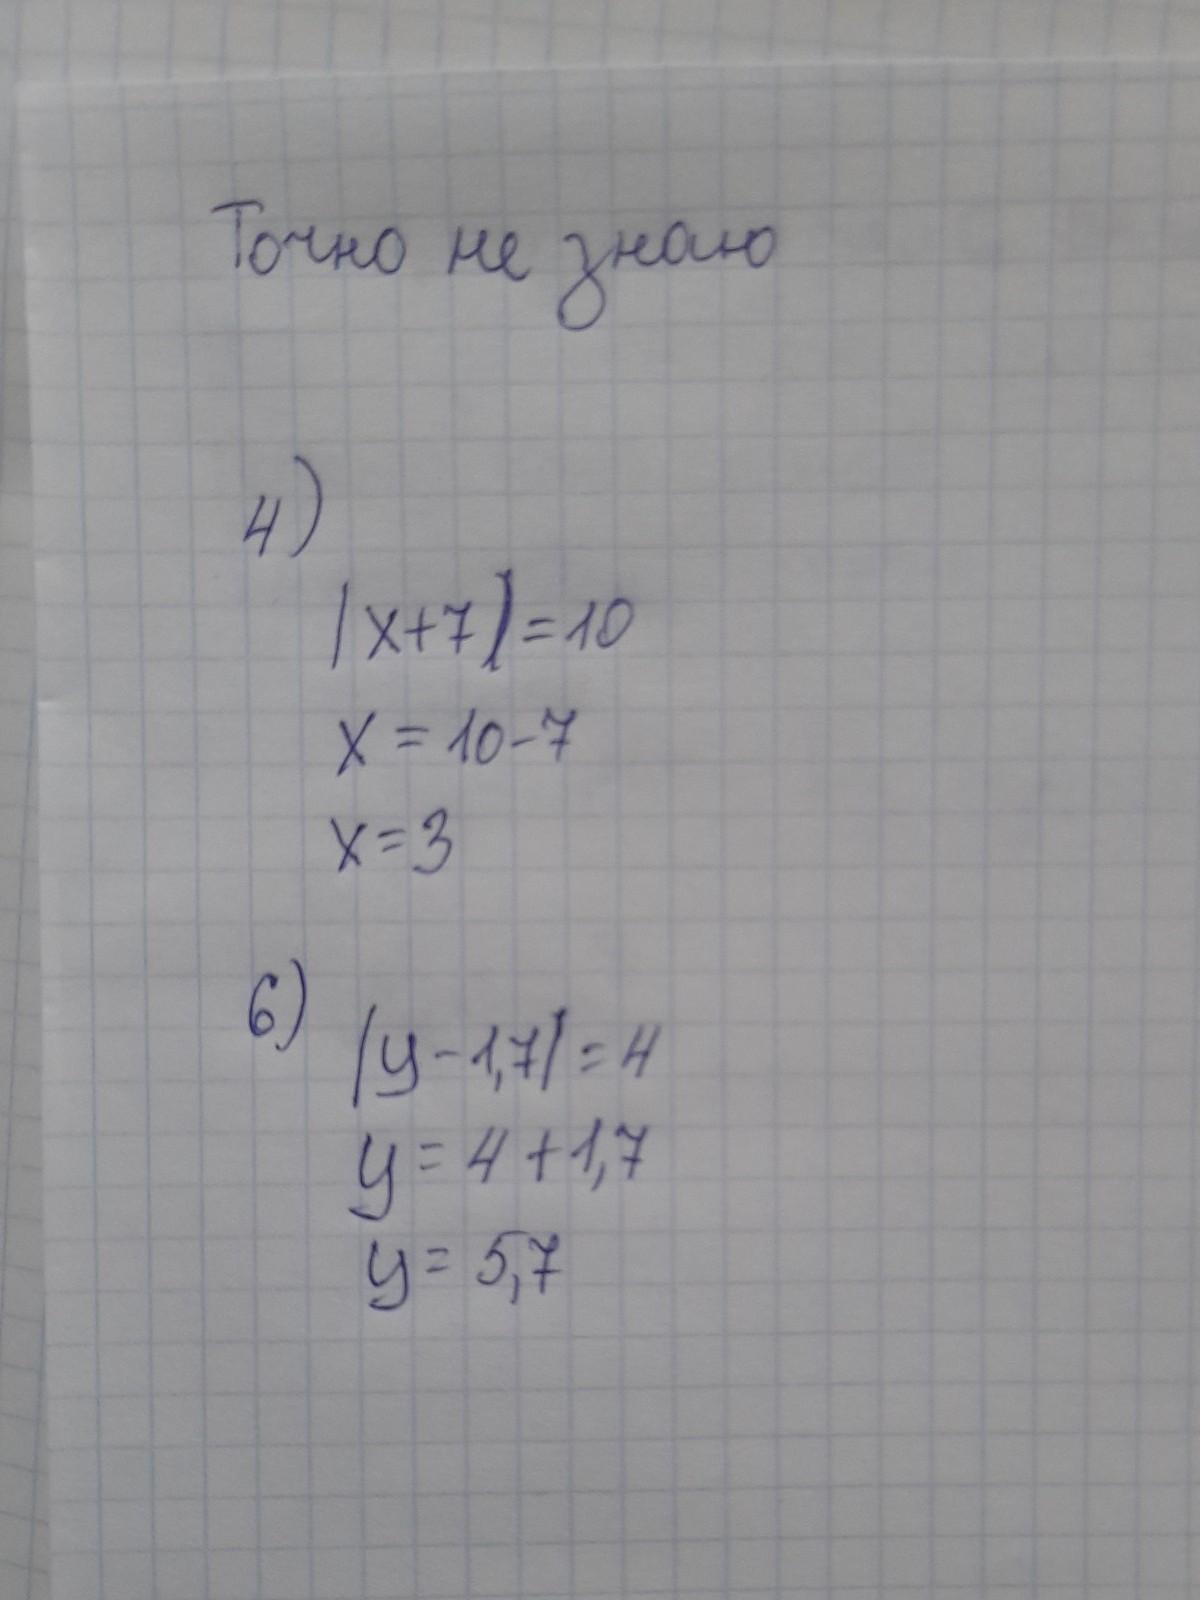 Точно не знаю
4)
|x+7|=10
x=10-7
x=3
6) |y-1,7|=4
y=4+1,7
y=5,7